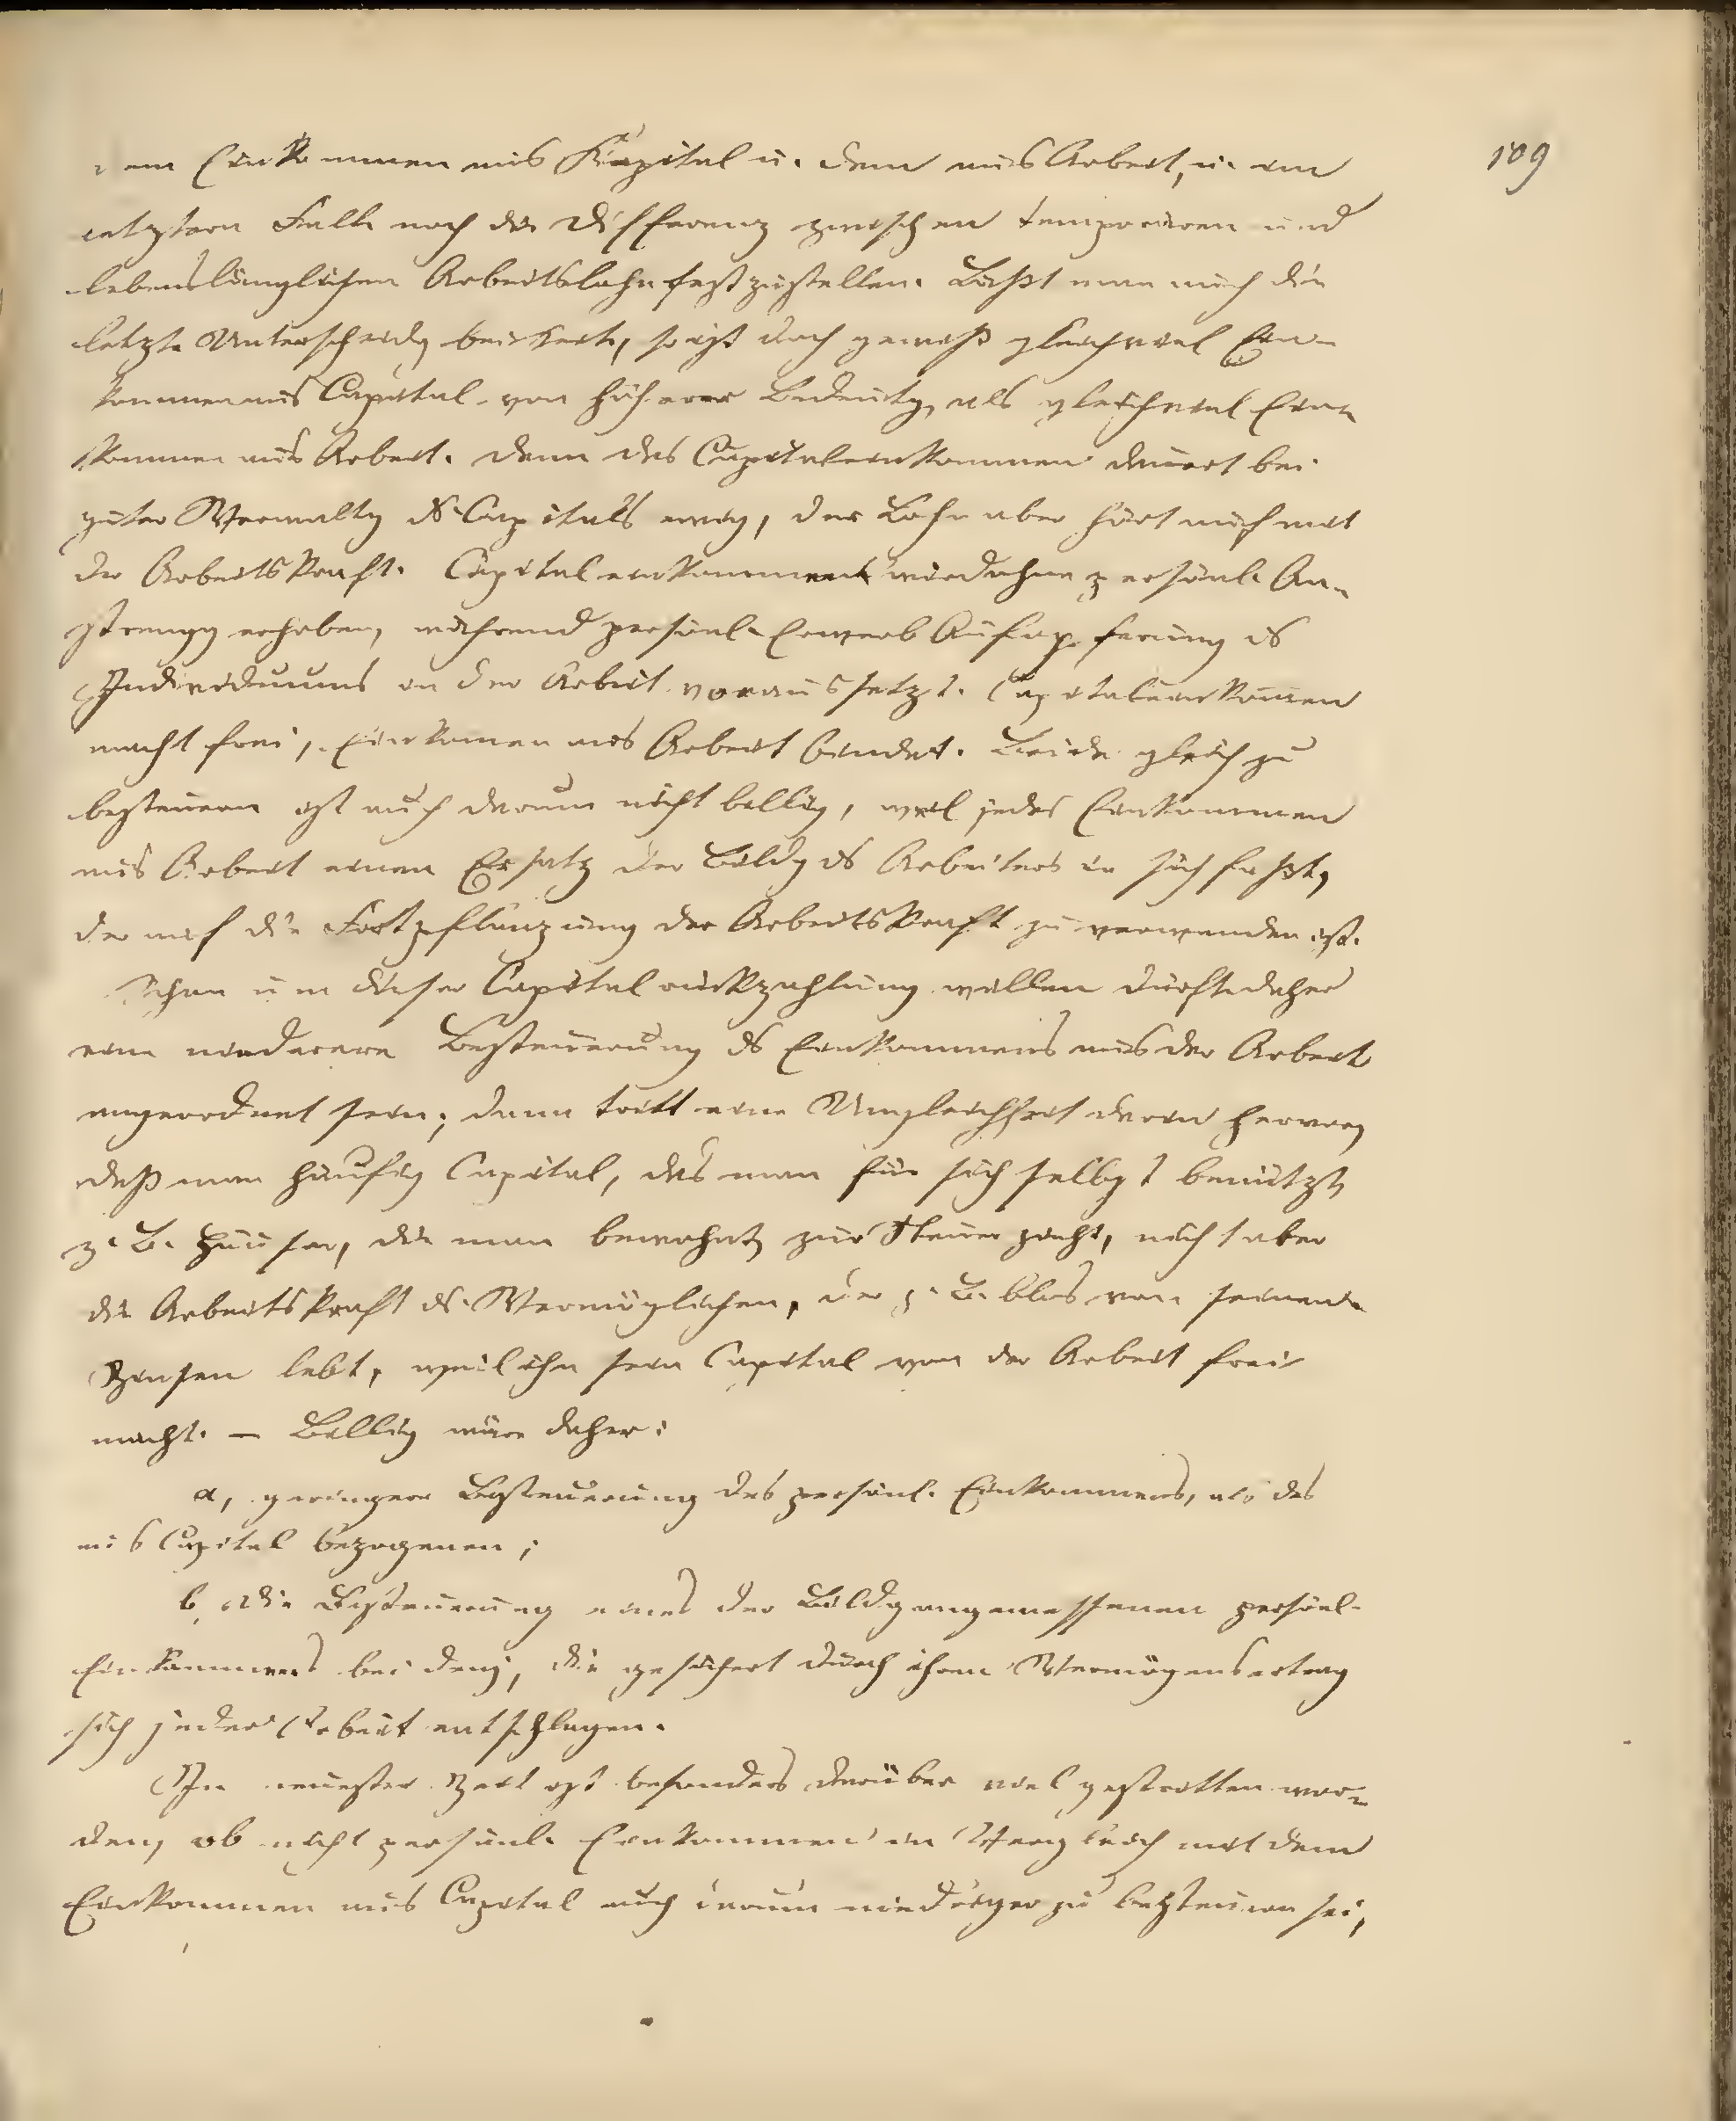 109
dem Einkommen aus Kapital u. dem aus Arbeit, u. im
letztern Falle noch die Differenz zwischen temporären und
lebenslänglichen Arbeitslohn festzustellen. Läßt man auch die
letzte Unterscheidg bei Seite, so ist doch gewiß gleichviel Ein-
kommen aus Capital von höherer Bedeutg, als gleichviel Ein-
kommen aus Arbeit. Denn das Capitaleinkommen dauert bei
guter Verwaltg ds Capitals ewig, der Lohn aber hört auf mit
der Arbeitskraft. Capitaleinkommen wird ohne persönl. An-
strengg erhoben, während persönl. Erwerb Aufopferung ds
Individuums in der Arbeit voraussetzt. Capitaleinkommen
macht frei, Einkomen aus Arbeit bindet. Beide gleich zu
besteuern ist auch darum nicht billig, weil jedes Einkommen
aus Arbeit einen Ersatz der Bildg ds Arbeiters in sich faßt,
der auf die Fortpflanzung der Arbeitskraft zu verwenden ist.
Schon um dieser Capitalrückzahlung willen dürfte daher
eine niederere Besteuerung ds Einkommens aus der Arbeit
angeordnet sein; dann tritt eine Ungleichheit darin hervor,
daß man häufig Capital, das man für sich selbst benützt,
z. B. Häuser, die man bewohnt, zur Steuer zieht, nicht aber
die Arbeitskraft ds Vermöglichen, der z. B. blos von seinen
Zinsen lebt, weil ihn sein Capital von der Arbeit frei
macht. — Billig wäre daher:
a, geringere Besteuerung des persönl. Einkommens, als des
aus Capital bezogenen;
b, die Besteuerung eines der Bildg angemessenen persönl.
Einkommens bei denj, die gesichert durch ihren Vermögensertrag
sich jeder Arbeit entschlagen.
In neuester Zeit ist besonders darüber viel gestritten wor-
den, ob nicht persönl. Einkommen im Vergleich mit dem
Einkommen aus Capital auch darum niedriger zu besteuern sei,